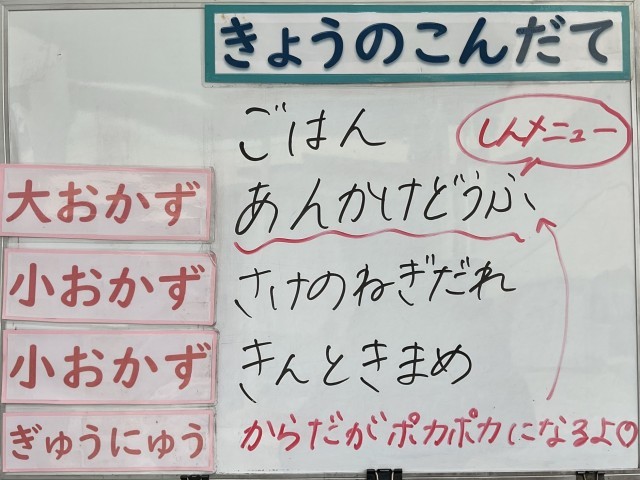 きょうのこんだて
ごはん
しんメニュー
大おかず あんかけどうふ
小おかず さけのねぎだれ
小おかず きんときまめ
ぎゅうにゅう からだがポカポカになるよ♡